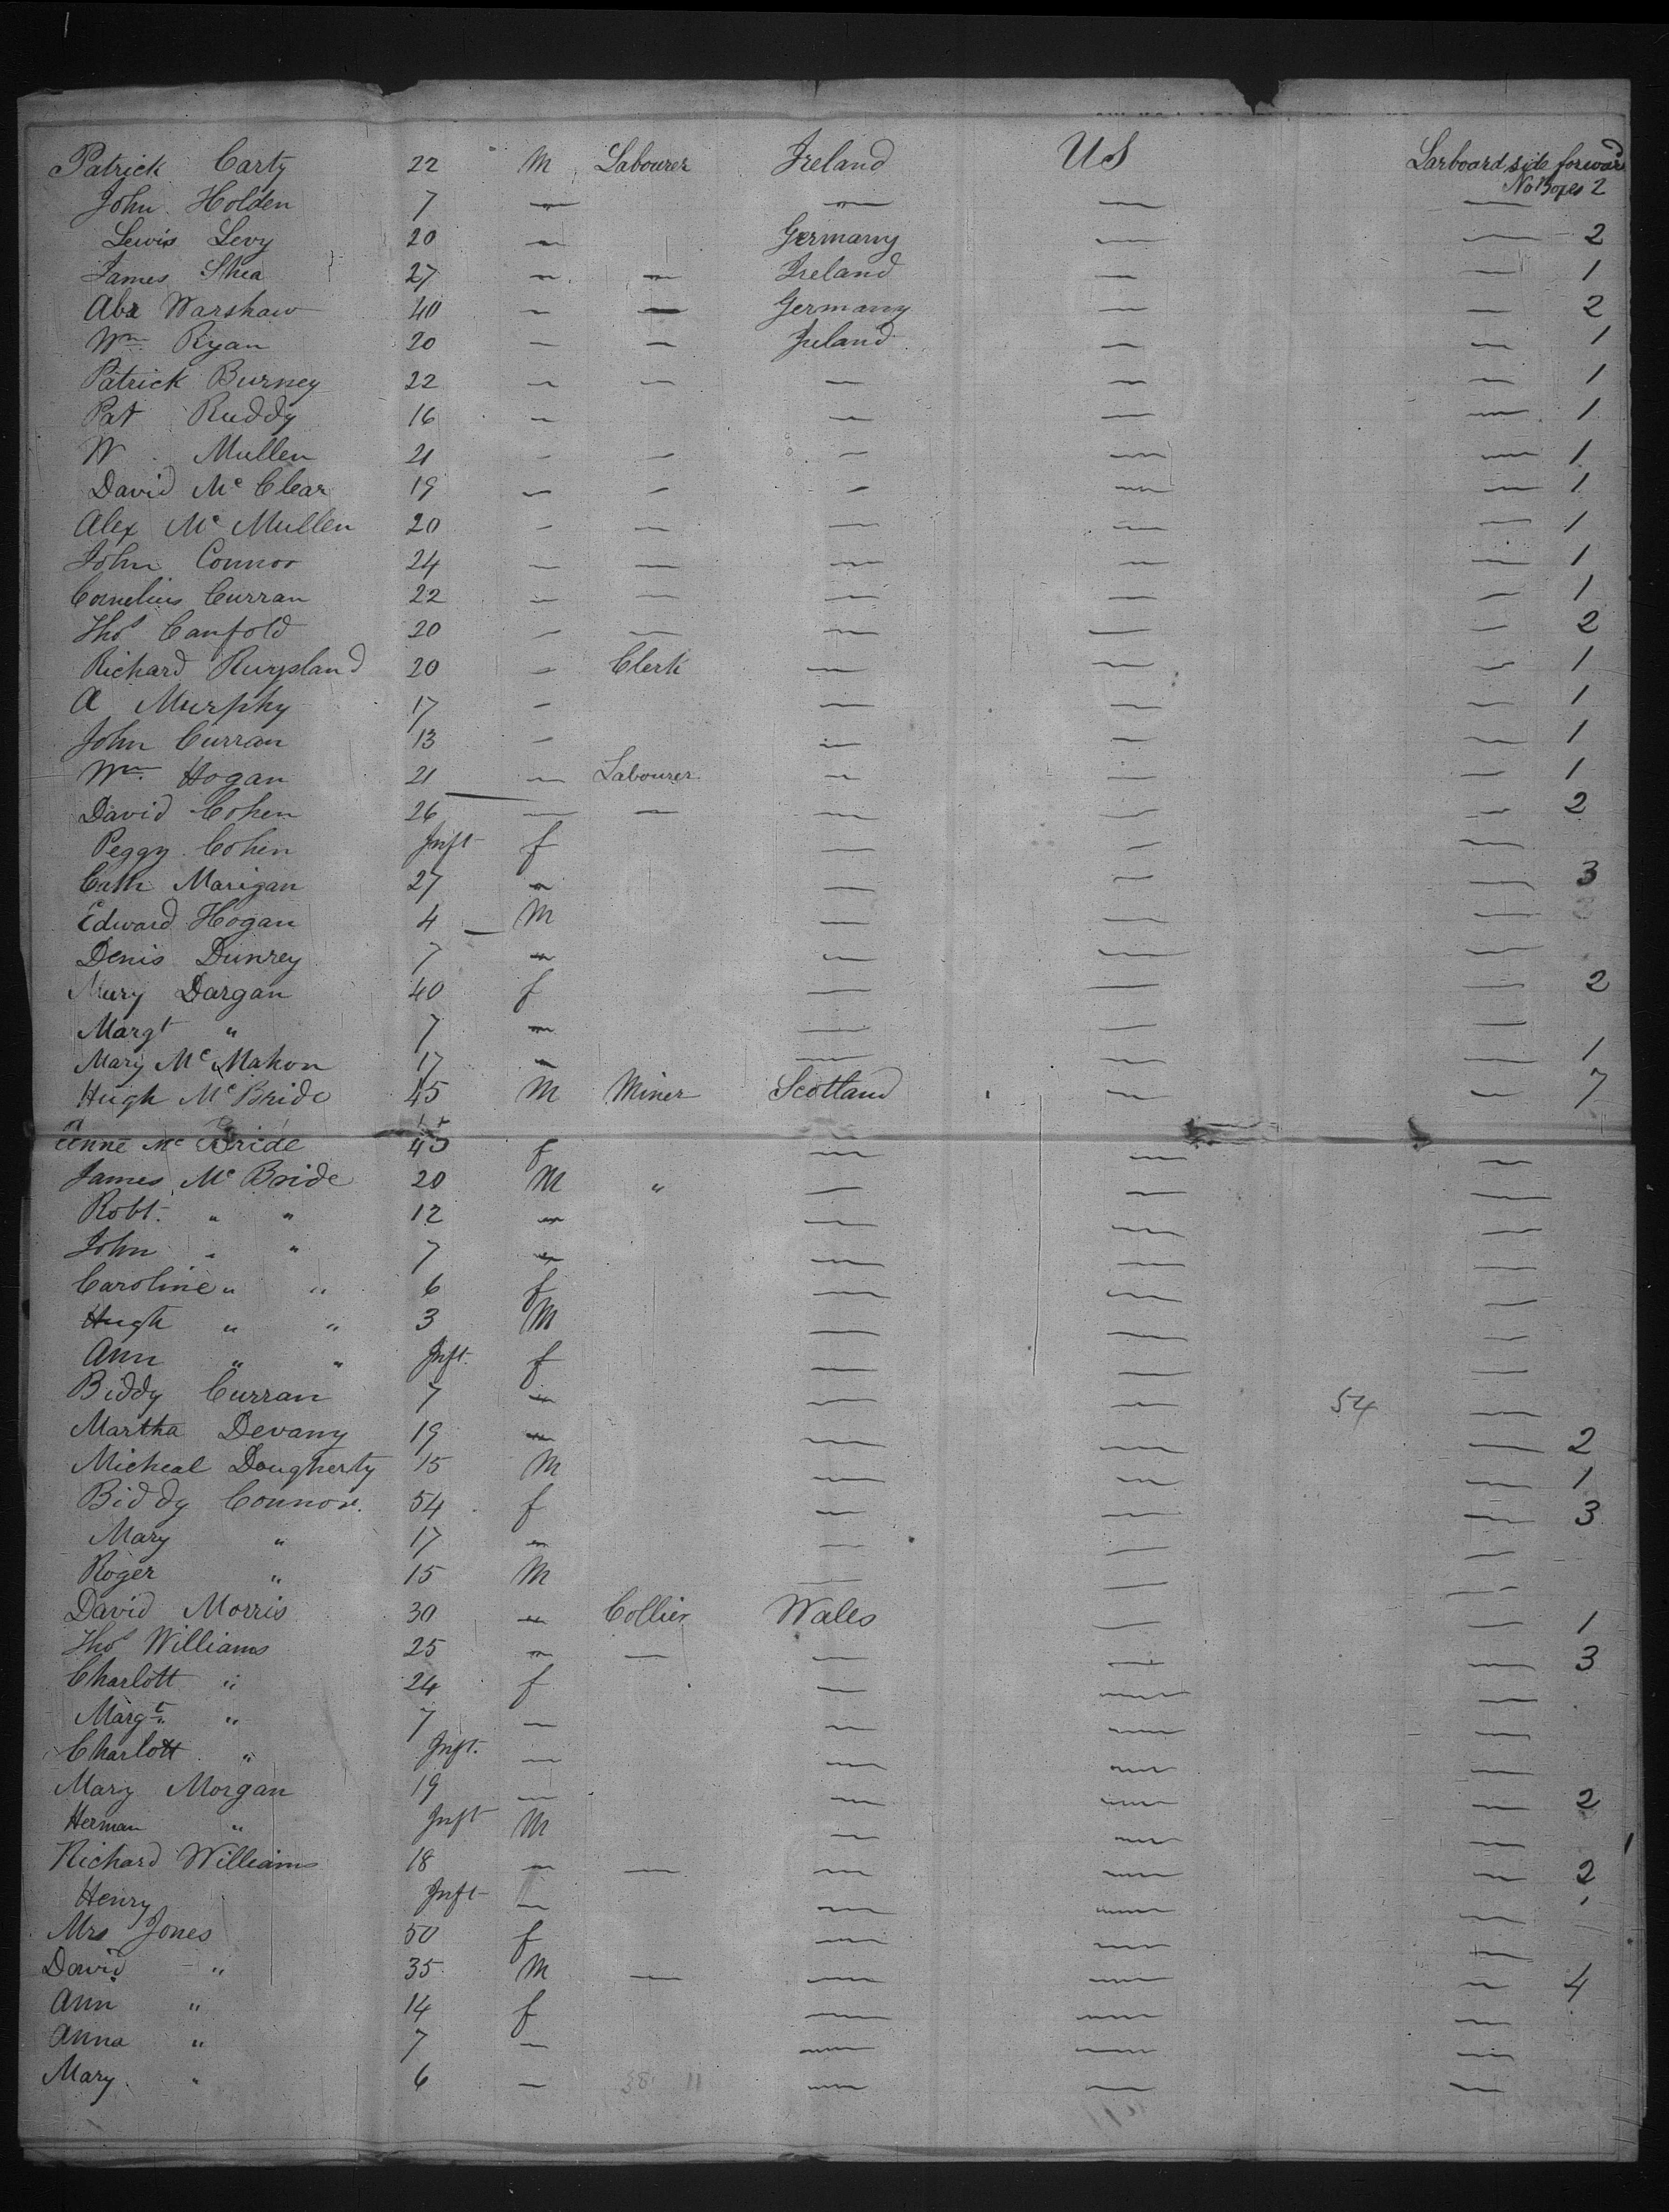 Patrick Carty 22 M Labourer Ireland US Larboard side forward
No Boxes 2
John Holden 7 — — — —
Lewis Levy 20 — Germany — — 2
James Shea 27 — — Ireland — — 1
Abr Warshaw 40 — — Germany — — 2
Wm Ryan 20 — — Ireland — — 1
Patrick Burney 22 — — — — — 1
Pat Ruddy 16 — — — — 1
W Mullen 21 — — — — — 1
David Mc Clear 19 — — — — — 1
Alex Mc Mullen 20 — — — — — 1
John Connor 24 — — — — — 1
Cornelius Curran 22 — — — — — 1
Thos Canfold 20 — — — — — 2
Richard 20 — Clerk — — — 1
A Murphy 17 — — — — 1
John Curran 13 — — — — 1
Wm Hogan 21 — Labourer — — — 1
David Cohen 26 — — — — — 2
Peggy Cohen Inft f — — —
Cath Marigan 27 — — — — 3
Edward Hogan 4 M — — —
Denis Dunrey 7 — — — —
Mary Dargan 40 f — — — 2
Margt " 7 — — — —
Mary Mc Mahon 17 — — — — 1
Hugh Mc Bride 45 M Miner Scotland — — 7
Anne Mc Bride 45 f — — —
James Mc Bride 20 M " — — —
Robt. " " 12 — — — —
John " " 7 — — — —
Caroline " " 6 f — — —
Hugh " " 3 M — — —
Ann " " Inft. f — — —
Biddy Curran 7 — — — 54 —
Martha Devany 19 — — — — 2
Micheal Dougherty 15 M — — — 1
Biddy Connor. 54 f — — — 3
Mary " 17 — — — —
Roger " 15 M — — —
David Morris 30 — Collier Wales — 1
Thos Williams 25 — — — — — 3
Charlott " 24 f — — —
Margt " 7 — — — —
Charlott " Inft. — — — —
Mary Morgan 19 — — — — 2
Herman " Inft M — — —
Richard Williams 18 — — — — — 2
Henry Inft — — — —
Mrs Jones 50 f — — —
David " 35 M — — — — 4
Ann " 14 f — — —
Anna " 7 — — — —
Mary " 6 — — — —